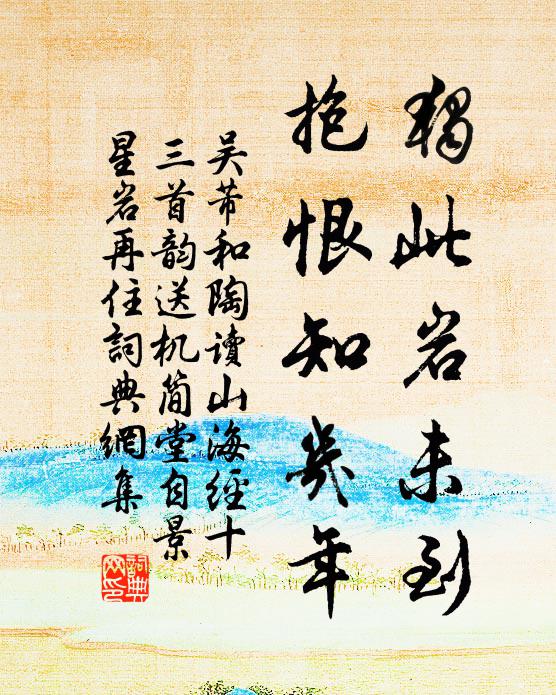 獨此岩未到
抱恨知幾年
吴芾和陶讀山海經十
三首韵送机简堂自景
星岩再住詞典網集
詞典
网印